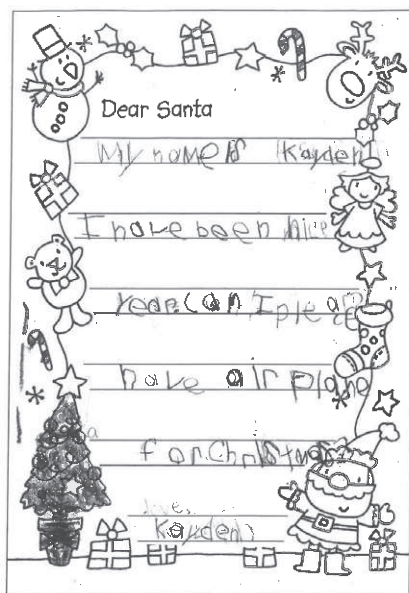 Dear Santa
My name is Kayden
I have been nice
year. Can I please
have air plane
a
for Christmas?
love,
Kayden